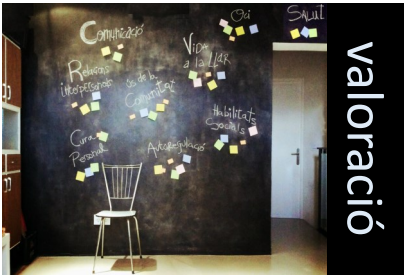 Comunicació
Oci
SALUT
VIDA
a la LLAR
Relacions
interpersonals
ús de la
Comunitat
Habilitats
Socials
Cura
Personal
Autoregulació
valoració